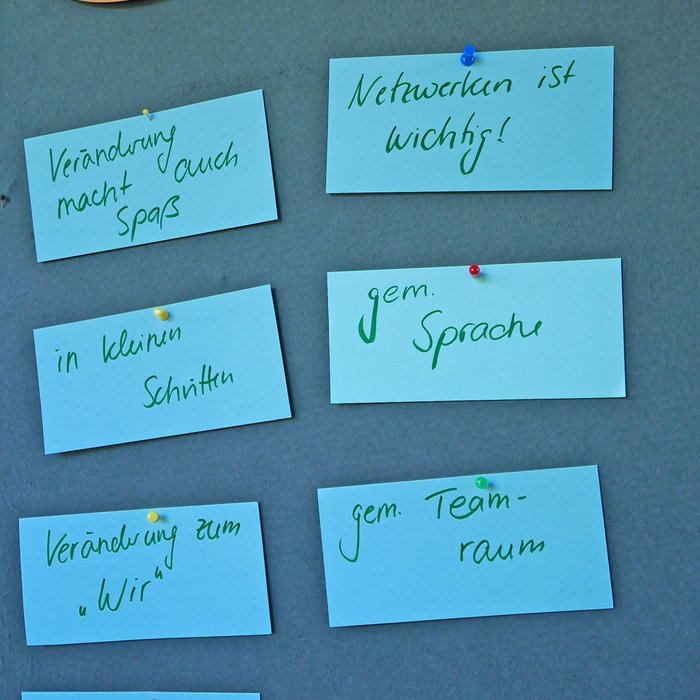 Veränderung
macht auch
Spaß
in kleinen
Schritten
Veränderung zum
„Wir“
Netzwerken ist
wichtig!
gem.
Sprache
gem. Team-
raum